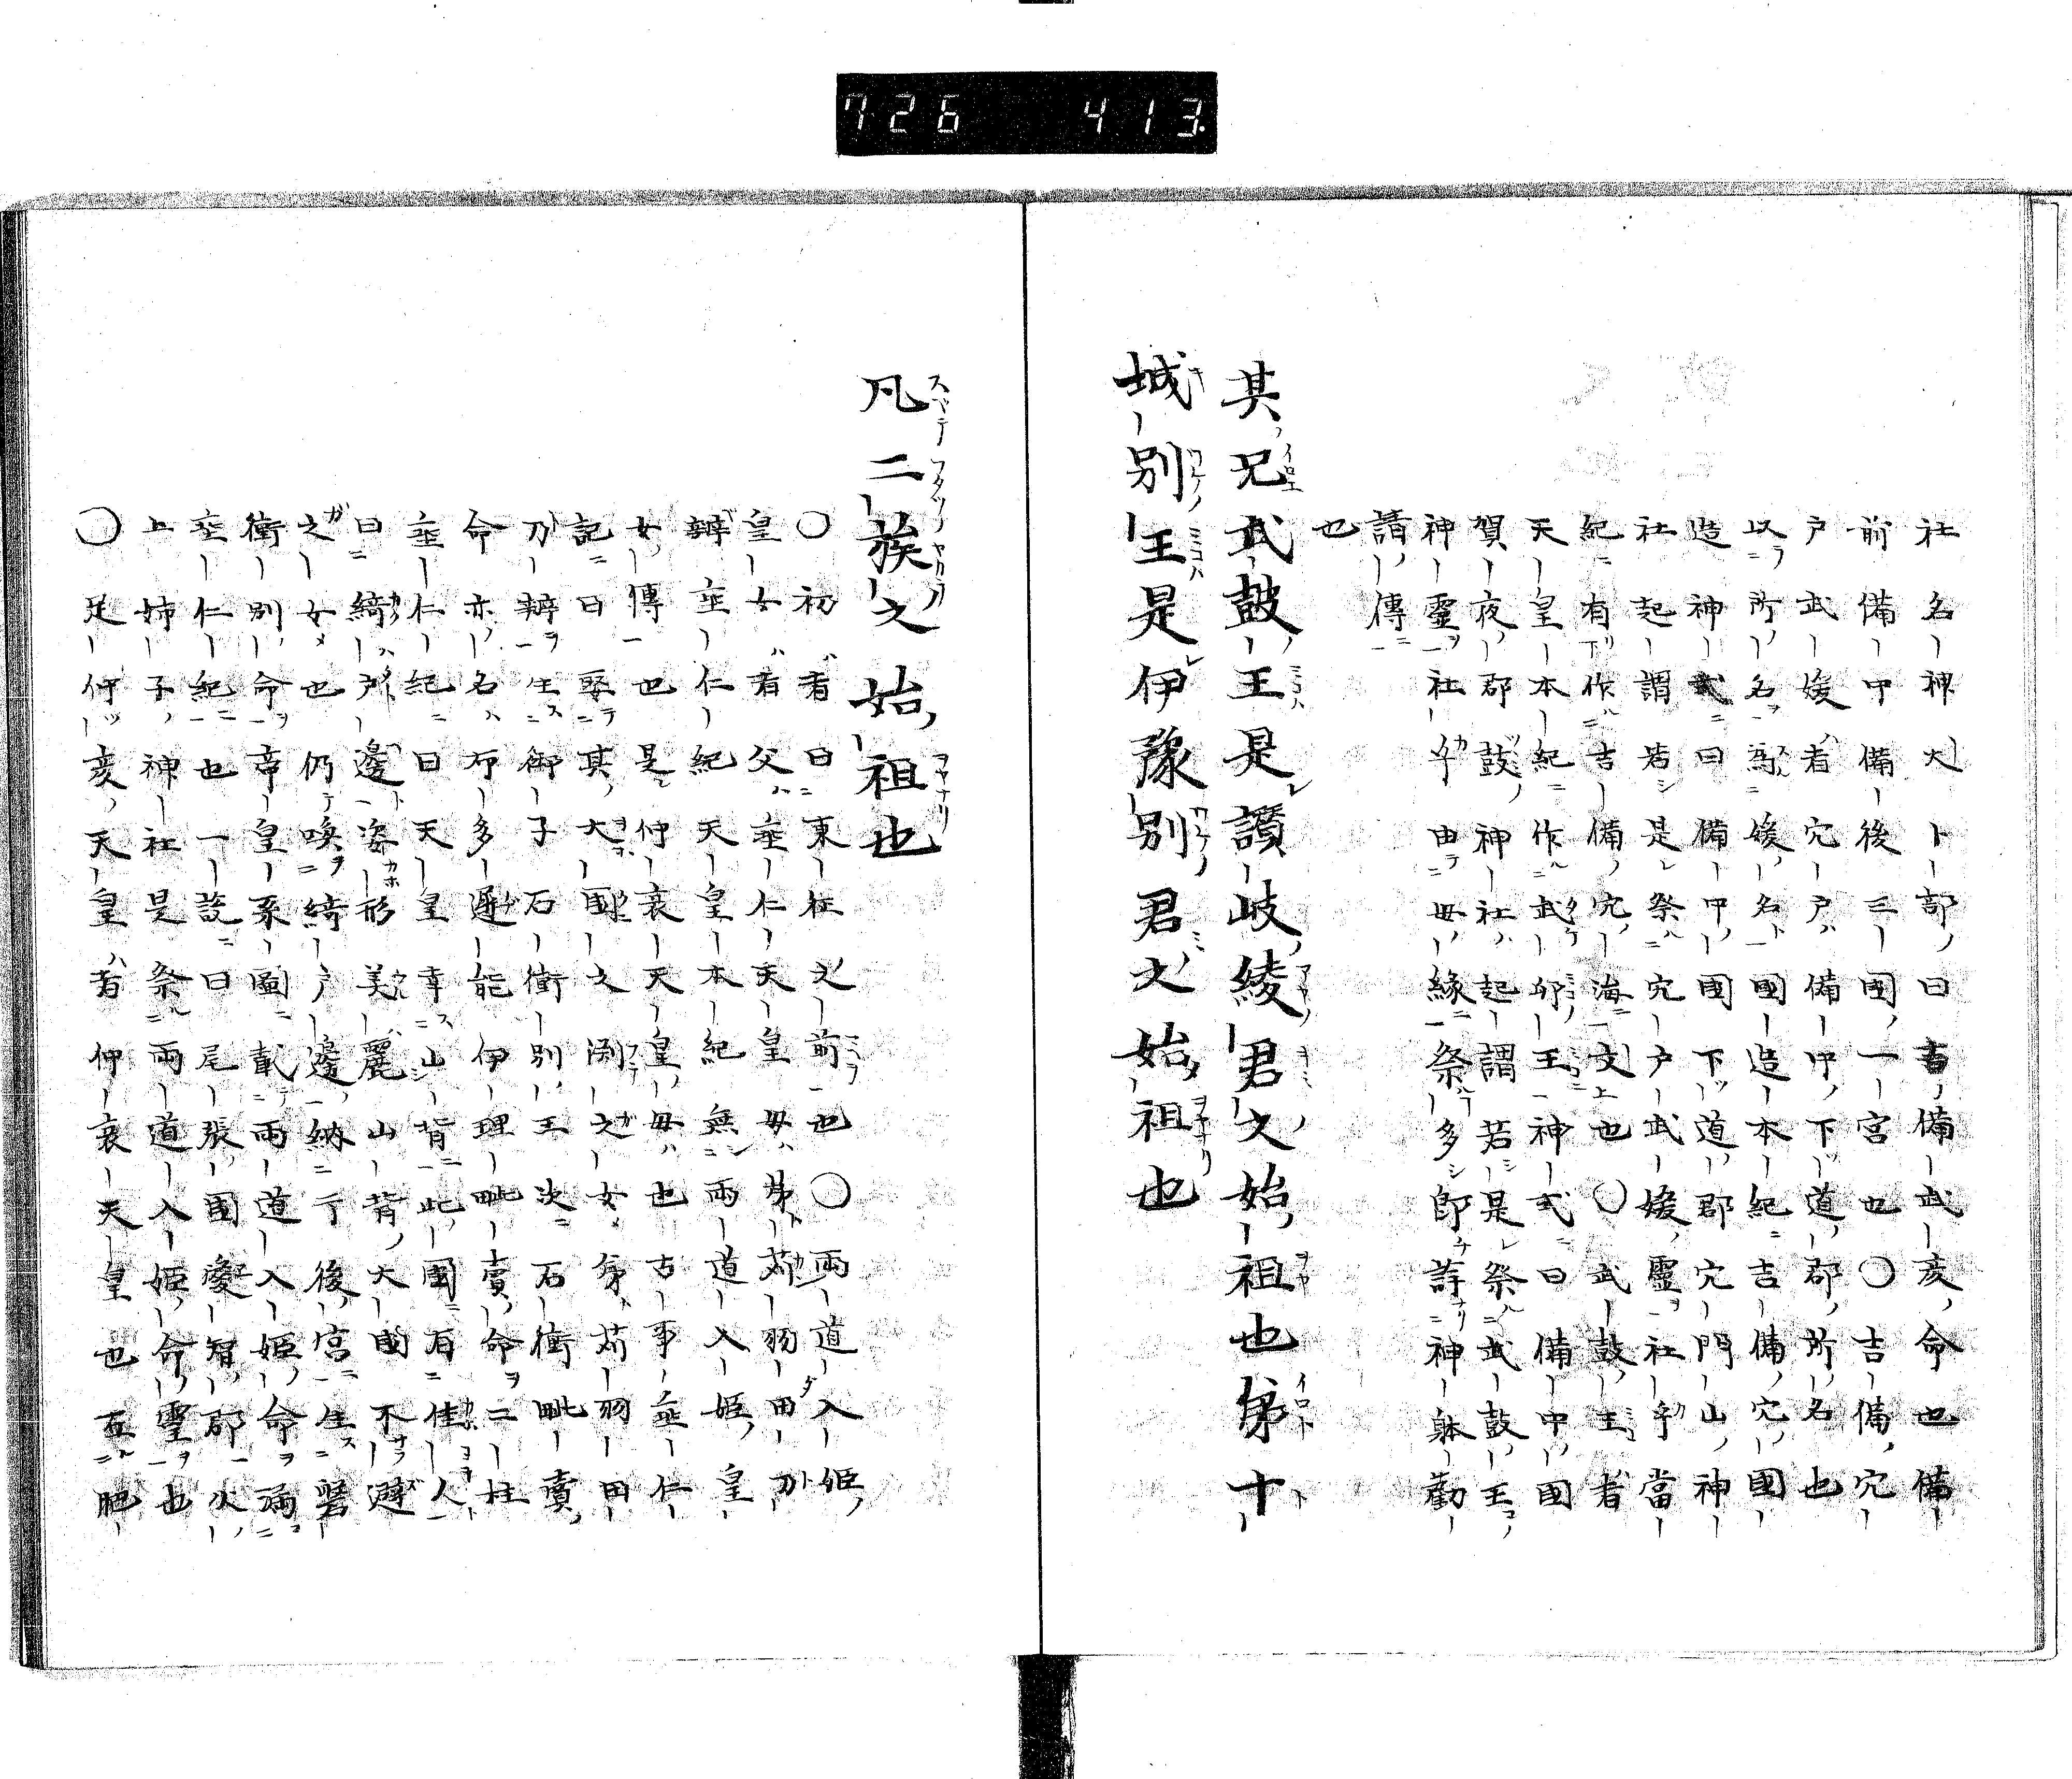 726 413.
社名神大卜部曰吉備武彦命也備
前備中備後三國一宮也○吉備穴
戸武媛者穴戸備中下道郡所名也
以所名為媛名國造本紀吉備穴國
造神武曰備中國下道郡穴門山神
社起謂若是祭穴戸武媛靈社乎當
紀有作吉備穴海文也○武鼓王者
天皇本紀作武卵王神式曰備中國
賀夜郡鼓神社起謂若是祭武鼓王
神靈社乎由母緣祭多郎詳神躰勸
請傳
也
其兄武鼓王是讃岐綾君之始祖也弟十
城別王是伊豫別君之始祖也
凡二族之始祖也
○初者曰東征之前也○兩道入姬
皇女者父垂仁天皇母弟苅羽田刀
辨垂仁紀天皇本紀無兩道入姬皇
女傳也是仲哀天皇母也古事垂仁
記曰娶其大國之淵之女弟苅羽田
刀辨生御子石衝別王次石衝毗賣
命亦名布多遲能伊理毗賣命二柱
垂仁紀曰天皇幸山背此國有佳人
曰綺戸邊姿形美麗山背大國不遲
之女也仍喚綺戸邊納于後宮生磐
衝別命帝皇系圖載兩道入姬命為
垂仁紀也一説曰尾張國愛智郡火
上姉子神社是祭兩道入姬命靈也
○足仲彦天皇者仲哀天皇也在肥